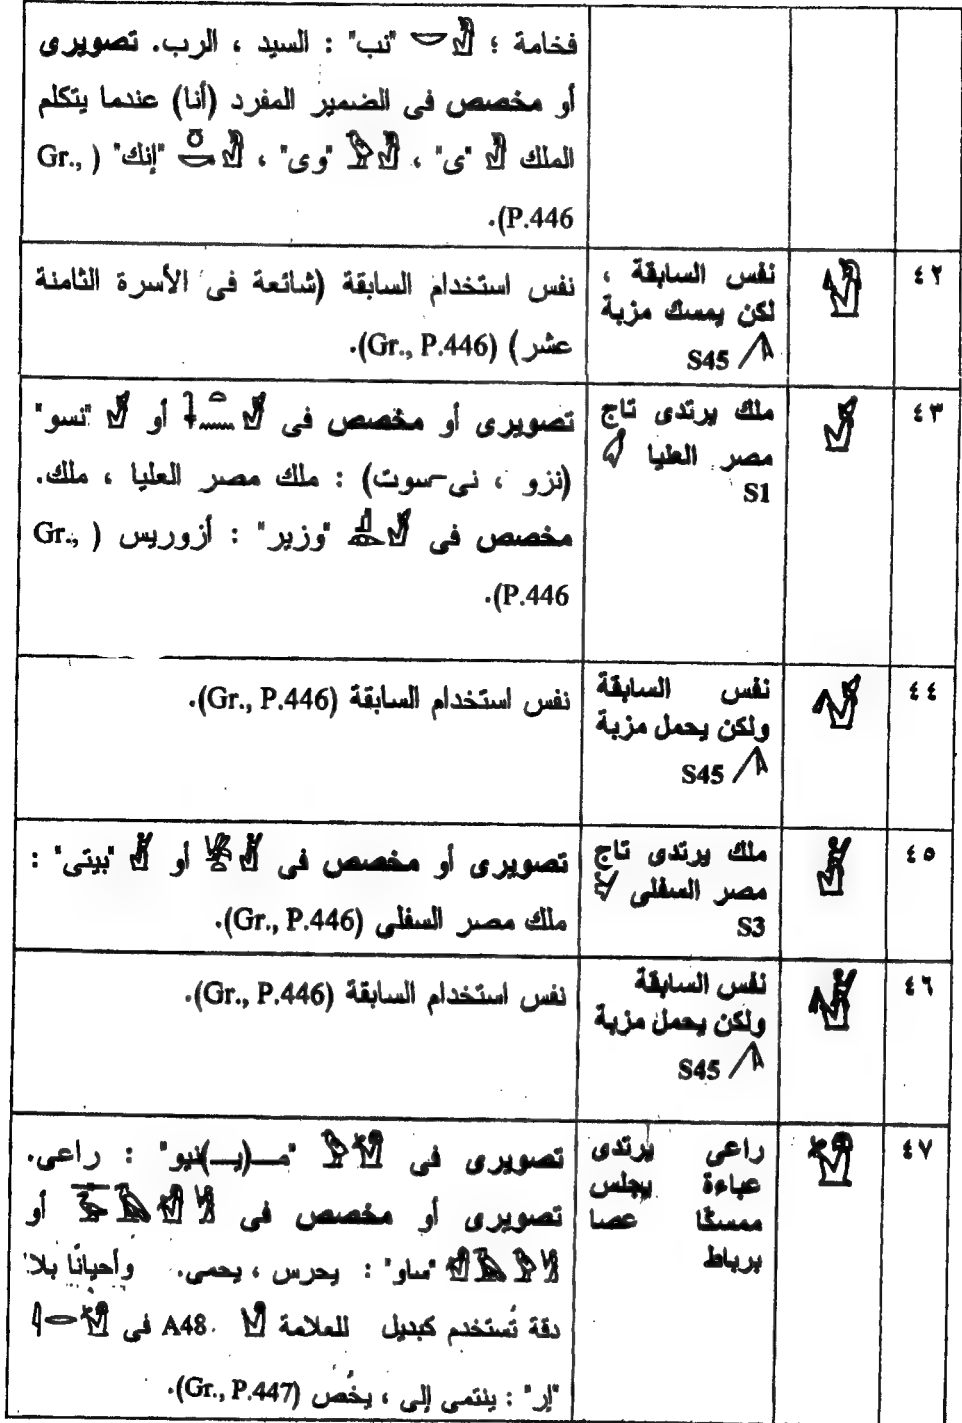 فخامة ؛ "نب" : السيد ، الرب. تصويرى
أو مخصص فى الضمير المفرد (أنا) عندما يتكلم
الملك "ى" ، "وى" ، "إنك" ( Gr.,
P.446).
٤٢
نفس السابقة ،
لكن يمسك مزبة
S45
نفس استخدام السابقة (شائعة فى الأسرة الثامنة
عشر) (Gr., P.446).
٤٣
ملك يرتدى تاج
مصر العليا
S1
تصويرى أو مخصص فى أو "نسو"
(نزو ، نى-سوت) : ملك مصر العليا ، ملك.
مخصص فى "وزير" : أزوريس ( Gr.,
P.446).
٤٤
نفس السابقة
ولكن يحمل مزبة
S45
نفس استخدام السابقة (Gr., P.446).
٤٥
ملك يرتدى تاج
مصر السفلى
S3
تصويرى أو مخصص فى أو "بيتى" :
ملك مصر السفلى (Gr., P.446).
٤٦
نفس السابقة
ولكن يحمل مزبة
S45
نفس استخدام السابقة (Gr., P.446).
٤٧
راعى يرتدى
عباءة يجلس
ممسكًا عصا
برباط
تصويرى فى "مـ(يـ)نيو" : راعى.
تصويرى أو مخصص فى أو
"ساو" : يحرس ، يحمى. وأحيانًا بلا
دقة تُستخدم كبديل للعلامة A48 فى
"إر" : ينتمى إلى ، يخُص (Gr., P.447).